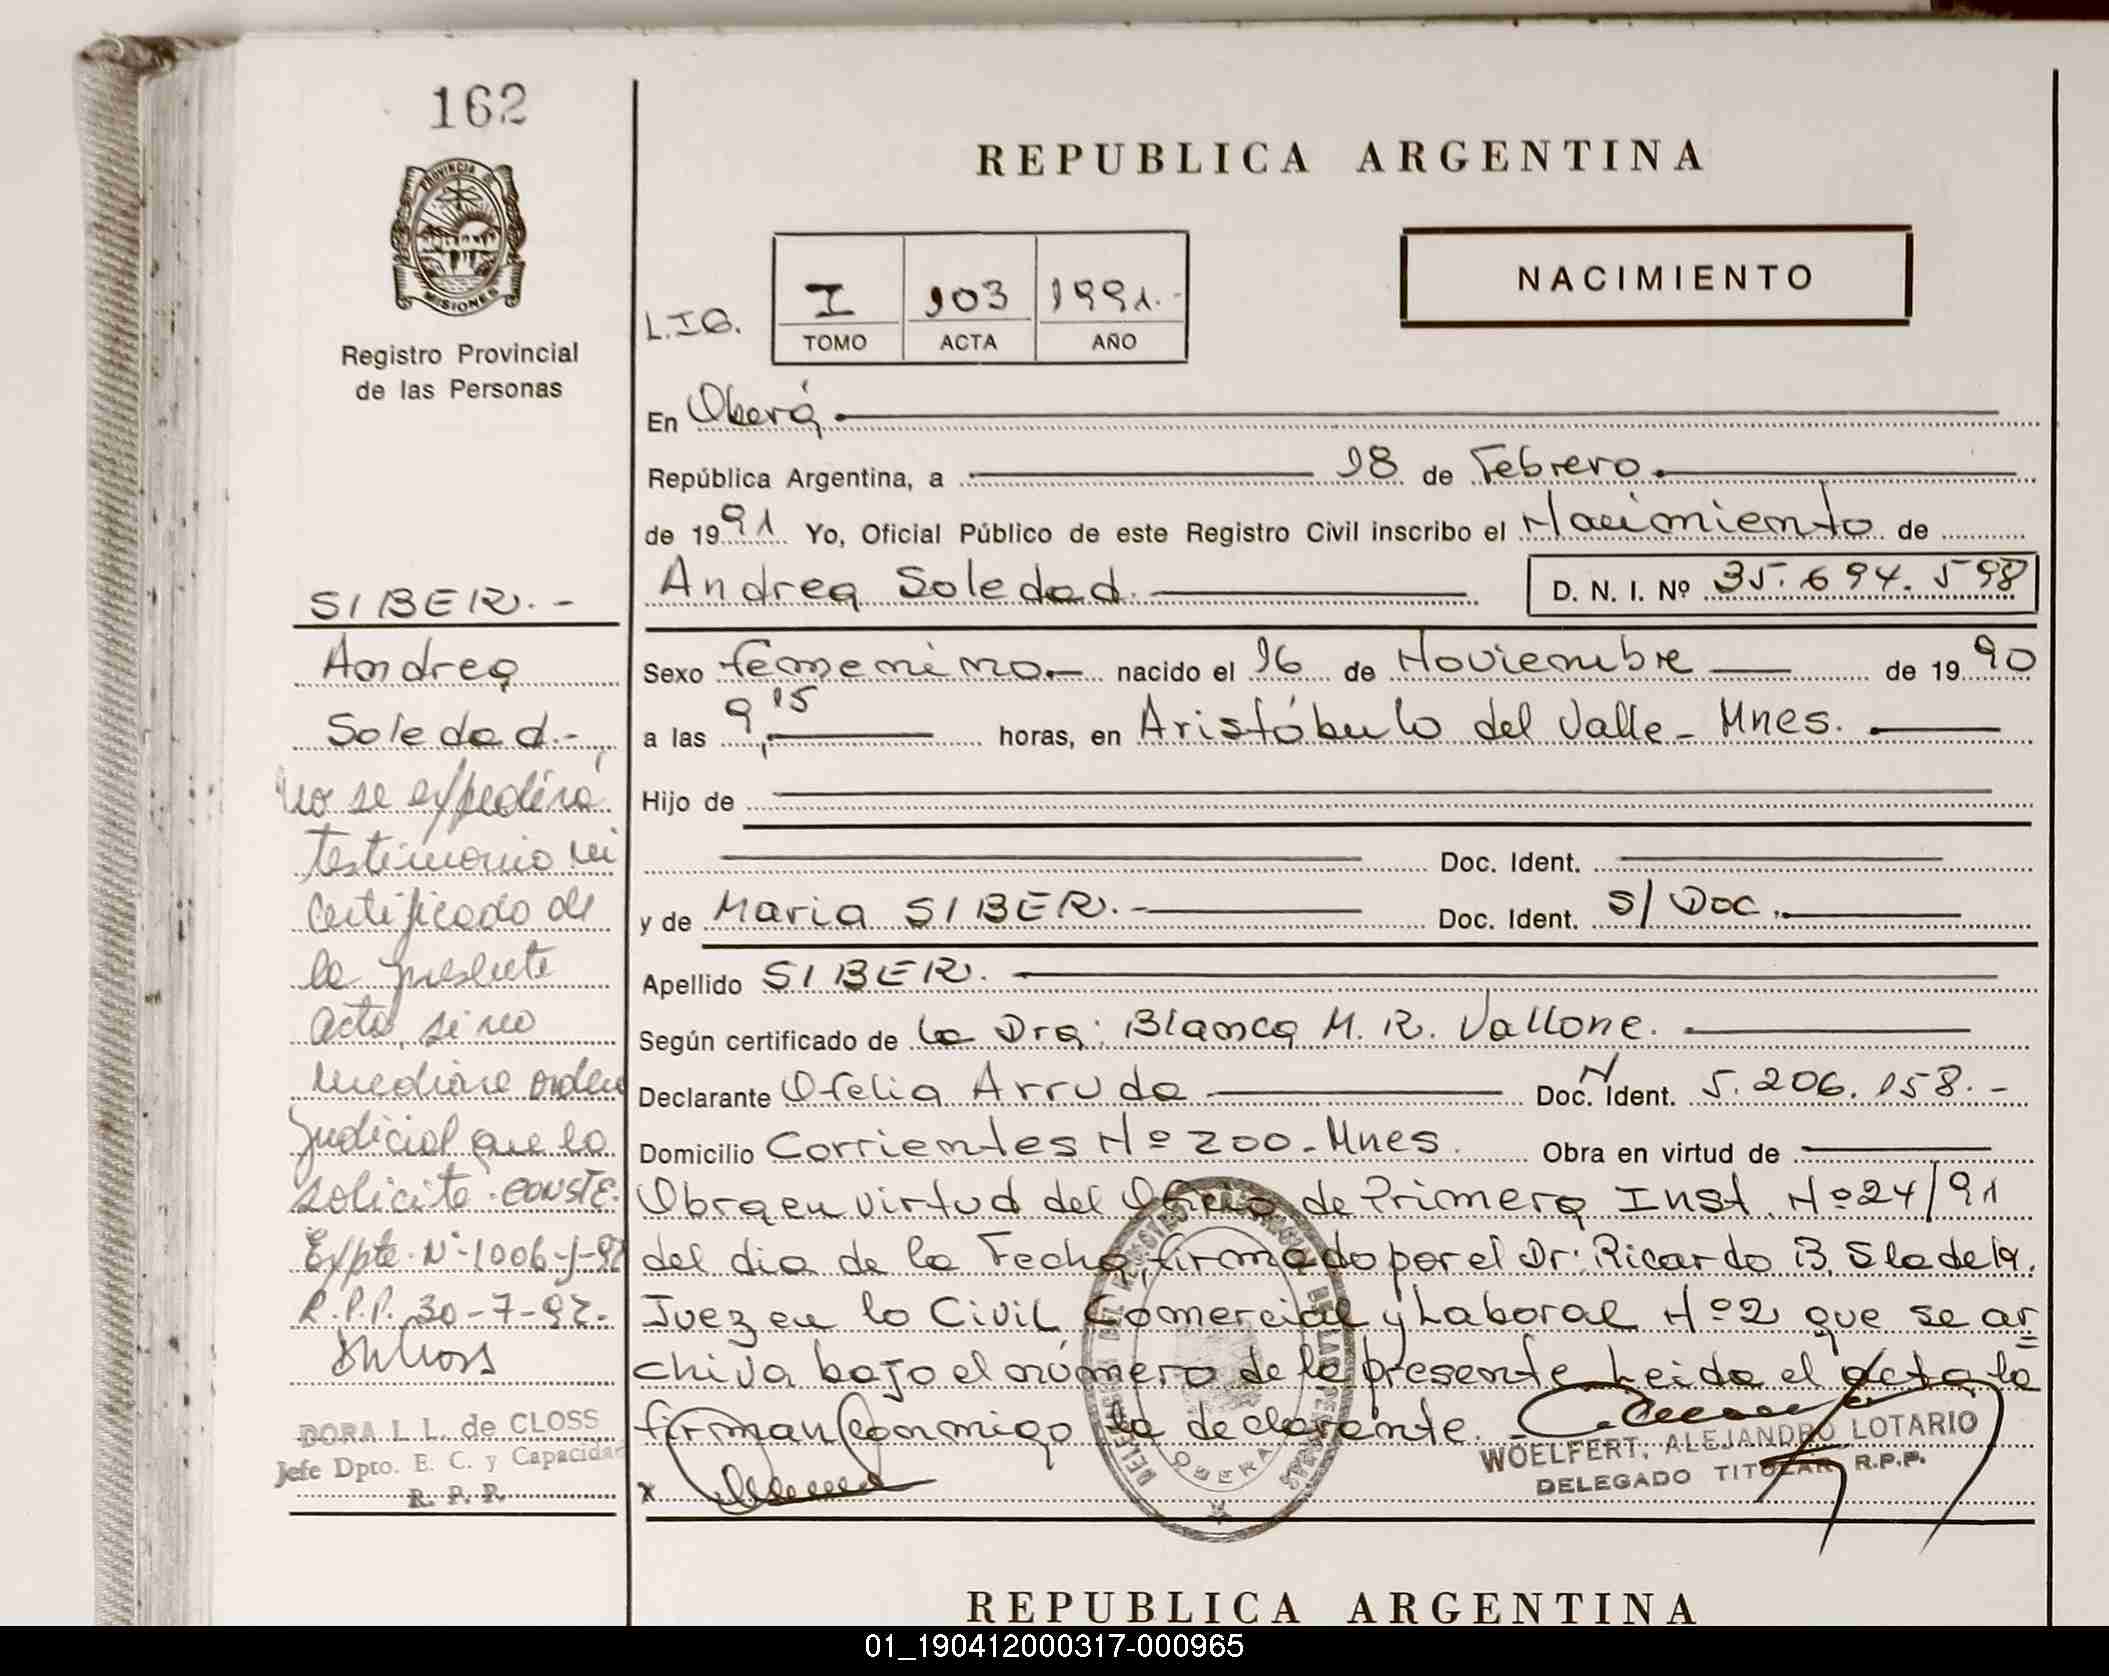 162
PROVINCIA DE
MISIONES
Registro Provincial
de las Personas
SIBER.-
Andrea
Soledad.-
No se expedirá
testimonio ni
certificado de
la presente
acta, si no
mediare orden
judicial que lo
solicite. CONSTE.
Expte. Nº 1006-J-92
R.P.P. 30-7-92.
DORA I. L. de CLOSS
Jefe Dpto. E. C. y Capacidad
R. P. P.
REPUBLICA ARGENTINA
NACIMIENTO
L.I.G.
I 103 1991.-
TOMO ACTA AÑO
En Oberá
República Argentina, a 18 de Febrero.
de 1991 Yo, Oficial Público de este Registro Civil inscribo el Nacimiento de
Andrea Soledad. D. N. I. Nº 35.694.598
Sexo femenino.- nacido el 16 de Noviembre de 1990
a las 9,15 horas, en Aristóbulo del Valle - Mnes.
Hijo de
Doc. Ident.
y de Maria SIBER.- Doc. Ident. S/ Doc.
Apellido SIBER.
Según certificado de la Dra: Blanca M. R. Vallone.
Declarante Ofelia Arruda Doc. N Ident. 5.206.158.-
Domicilio Corrientes Nº 200 - Mnes. Obra en virtud de
Obra en virtud del Oficio de Primera Inst. Nº 24/91
del dia de la Fecha, firmado por el Dr: Ricardo B. Sladela.
Juez en lo Civil, Comercial y Laboral Nº 2 que se ar
chiva bajo el número de la presente Leida el acta, la
firman conmigo la declarante.
x
OBERA
WOELFERT, ALEJANDRO LOTARIO
DELEGADO TITULAR R.P.P.
REPUBLICA ARGENTINA
01_190412000317-000965